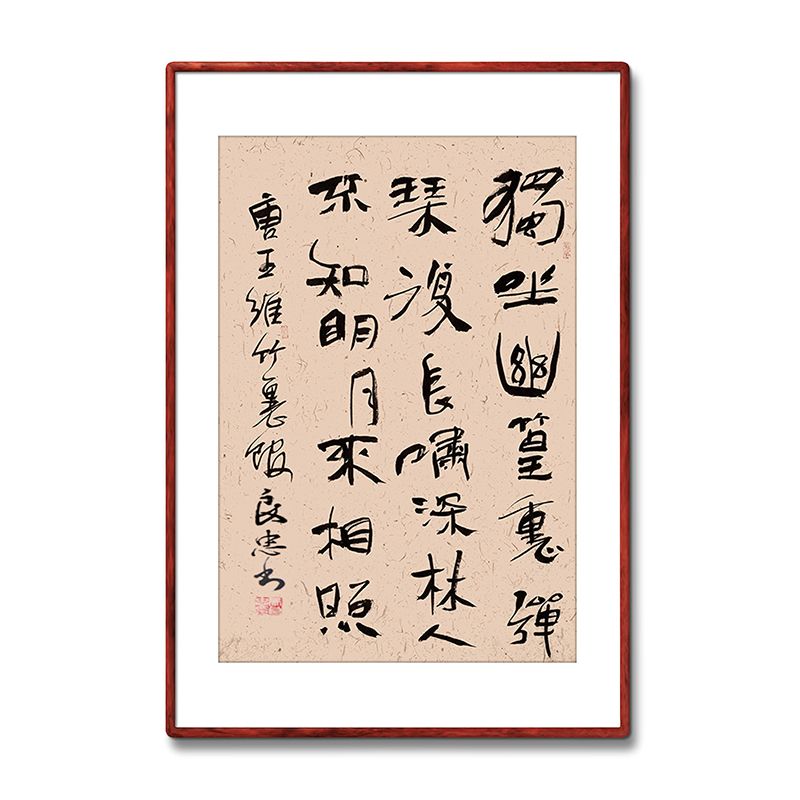 獨坐幽篁裏彈
琹復長嘯深林人
不知明月來相照
唐王維竹裏館良忠书